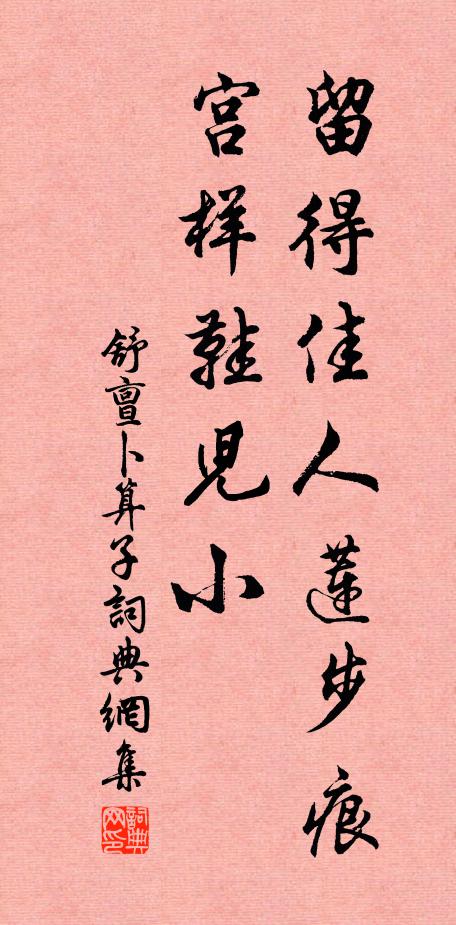 留得佳人蓮步痕
宫样鞋兒小
舒亶卜算子詞典網集
詞典网印